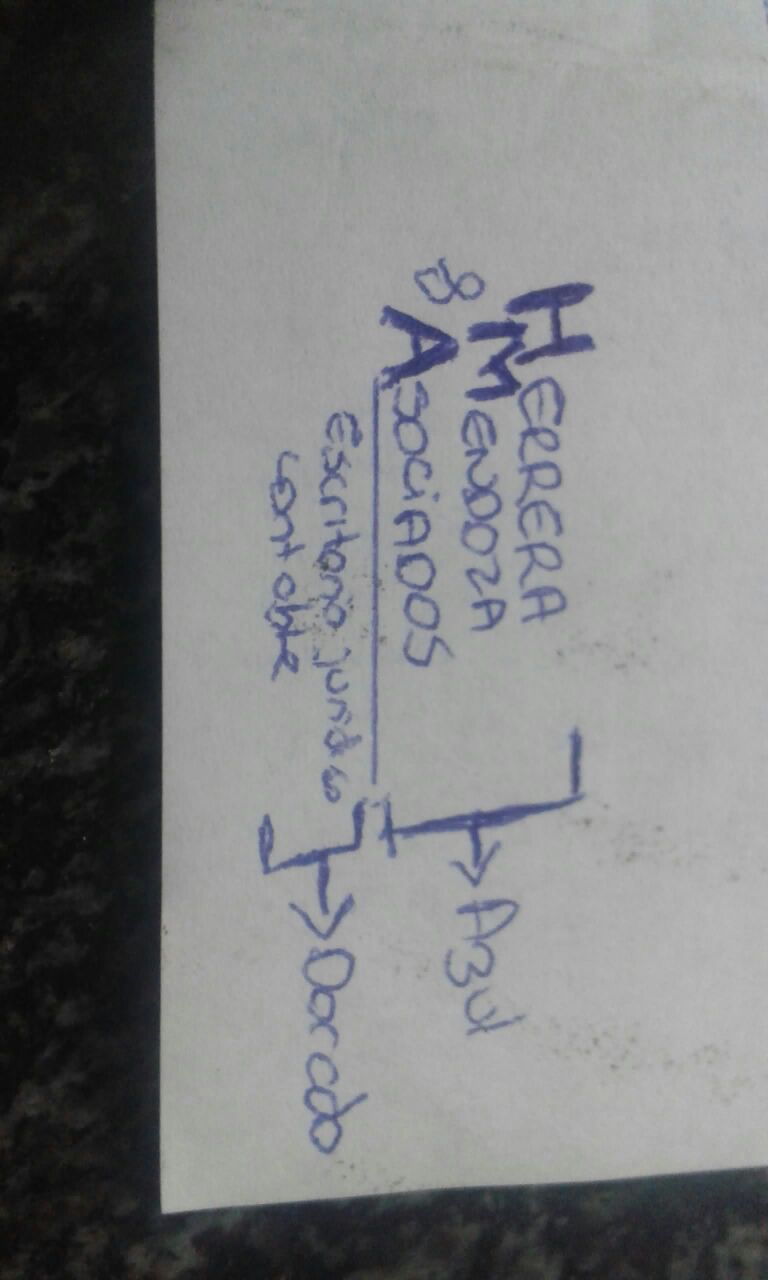 HERRERA
MENDOZA
& ASOCIADOS
Escritorio juridico
contable
Azul
Dorado